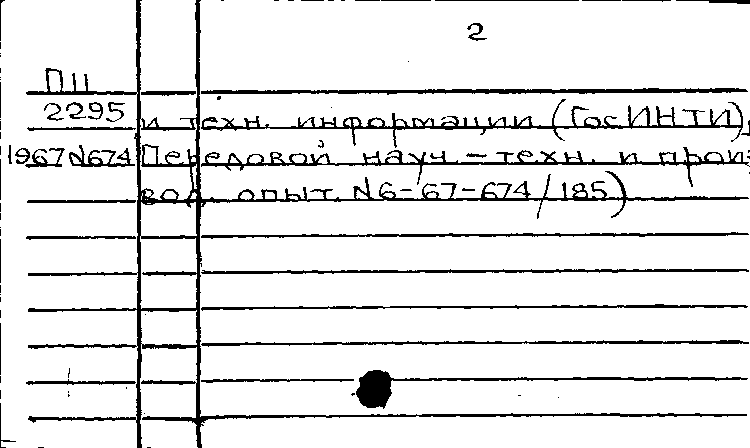 2
П11
2295 и техн. информации (ГосИНТИ),
1967 N674 Передовой науч.-техн. и произ
вод. опыт. N6-67-674/185)